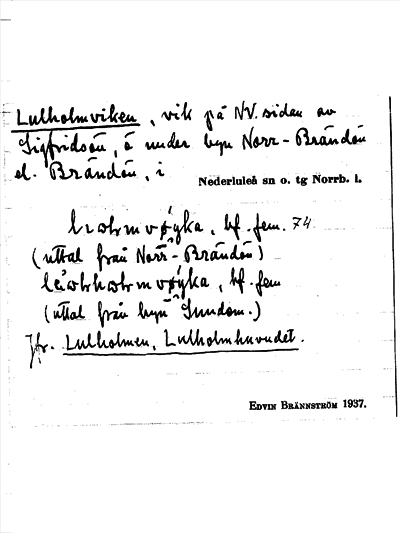 Lulholmviken, vik på NV. sidan av
Sigfridsön, ö under byn Norr-Brändön
el. Brändön, i
Nederluleå sn o. tg Norrb. l.
bf. fem. 74
(uttal från Norr-Brändön)
bf. fem
(uttal från byn Sundom.)
Jfr. Lulholmen, Lulholmhuvudet.
EDVIN BRÄNNSTRÖM 1937.